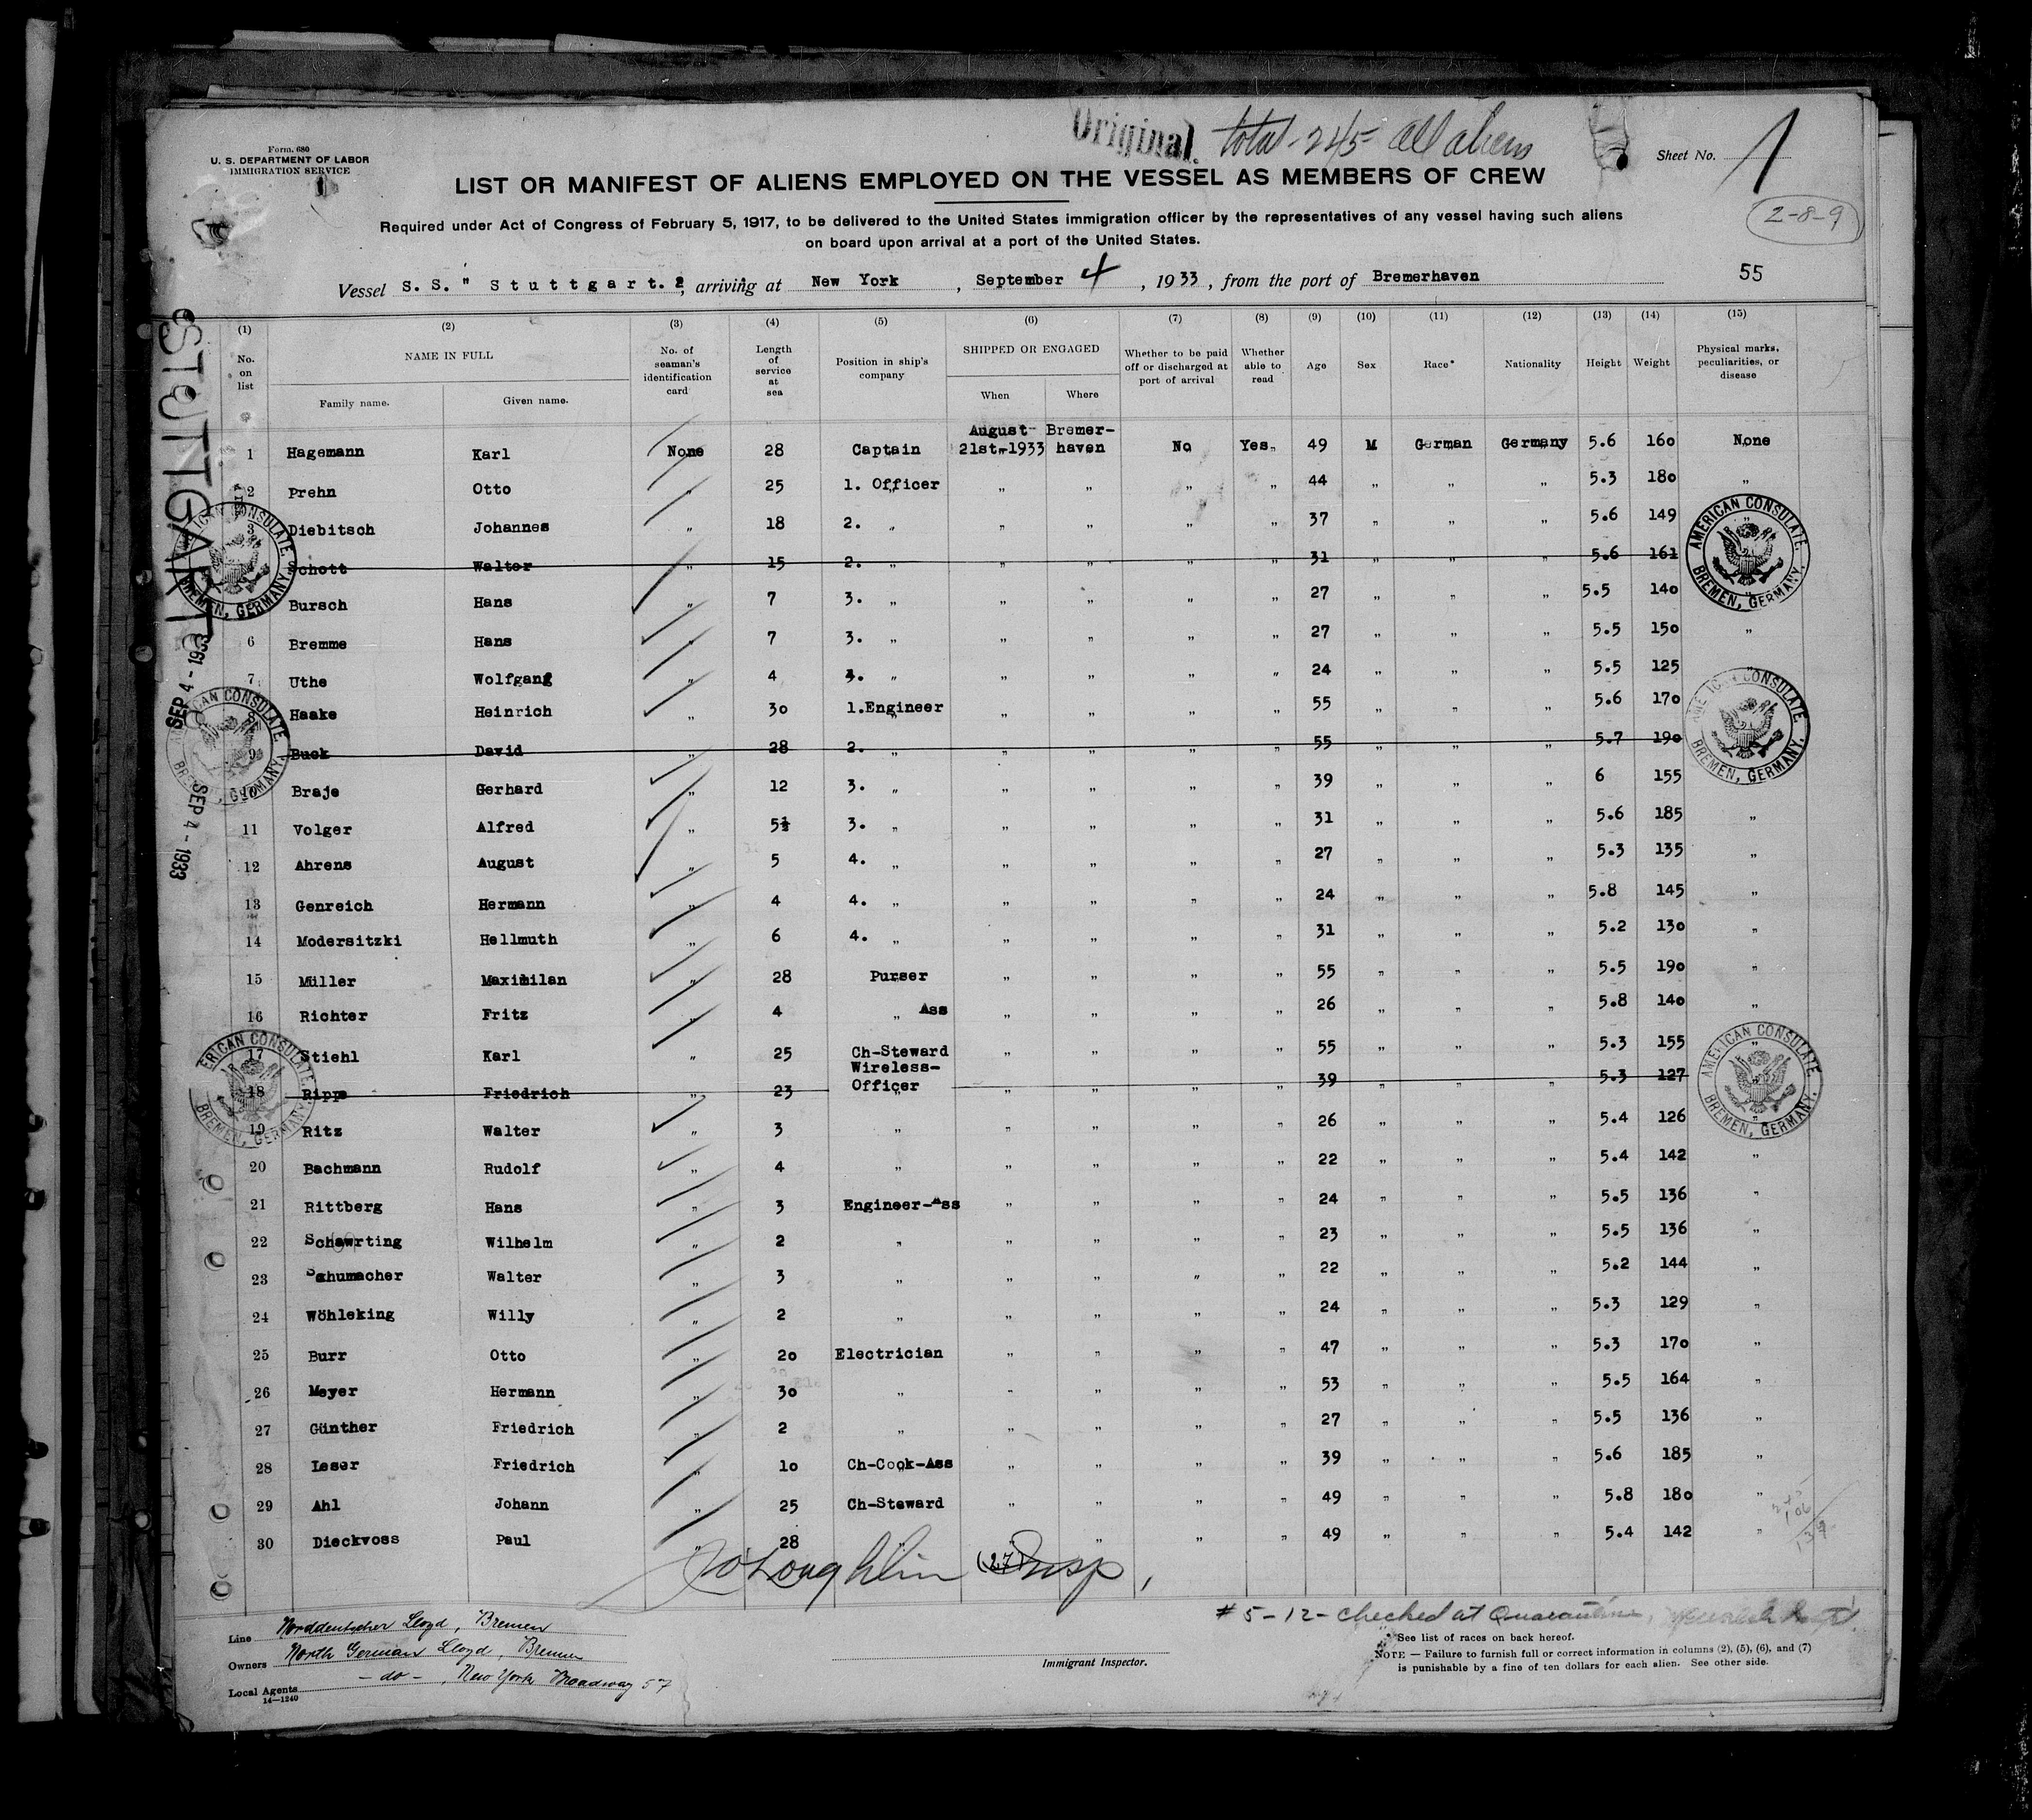 Original
total - 245 all aliens
Form. 680
U. S. DEPARTMENT OF LABOR
IMMIGRATION SERVICE
Sheet No. 1
LIST OR MANIFEST OF ALIENS EMPLOYED ON THE VESSEL AS MEMBERS OF CREW
2-8-9
Required under Act of Congress of February 5, 1917, to be delivered to the United States immigration officer by the representatives of any vessel having such aliens
on board upon arrival at a port of the United States.
Vessel S. S. " Stuttgart. , arriving at New York , September 4 , 1933 , from the port of Bremerhaven
55
STUTTGART
SEP 4 - 1933
SEP 4 - 1933
(1) (2) (3) (4) (5) (6) (7) (8) (9) (10) (11) (12) (13) (14) (15)
No. on list NAME IN FULL Family name. Given name. No. of seaman's identification card Length of service at sea Position in ship's company SHIPPED OR ENGAGED When Where Whether to be paid off or discharged at port of arrival Whether able to read Age Sex Race* Nationality Height Weight Physical marks, peculiarities, or disease
August Bremer-
1 Hagemann Karl None 28 Captain 21st-1933 haven No Yes 49 M German Germany 5.6 160 None
2 Prehn Otto 25 1. Officer " " " " 44 " " " 5.3 180 "
3 Diebitsch Johannes " 18 2. " " " " " 37 " " " 5.6 149 "
Schott Walter " 15 2. " " " " " 31 " " " 5.6 161
Bursch Hans " 7 3. " " " " " 27 " " " 5.5 140 "
6 Bremme Hans " 7 3. " " " " " 27 " " " 5.5 150 "
7 Uthe Wolfgang " 4 4. " " " " " 24 " " " 5.5 125 "
8 Haake Heinrich " 30 1.Engineer " " " " 55 " " " 5.6 170
9 Buck David " 28 2. " " " " " 55 " " " 5.7 190
10 Braje Gerhard " 12 3. " " " " " 39 " " " 6 155
11 Volger Alfred " 5½ 3. " " " " " 31 " " " 5.6 185 "
12 Ahrens August " 5 4. " " " " " 27 " " " 5.3 135 "
13 Genreich Hermann " 4 4. " " " " " 24 " " " 5.8 145 "
14 Modersitzki Hellmuth " 6 4. " " " " " 31 " " " 5.2 130 "
15 Müller Maximilan " 28 Purser " " " " 55 " " " 5.5 190 "
16 Richter Fritz " 4 " Ass " " " " 26 " " " 5.8 140 "
17 Stiehl Karl " 25 Ch-Steward " " " " 55 " " " 5.3 155 "
Wireless-
18 Ripps Friedrich " 23 Officer " " " " 39 " " " 5.3 127
19 Ritz Walter " 3 " " " " " 26 " " " 5.4 126 "
20 Bachmann Rudolf " 4 " " " " " 22 " " " 5.4 142 "
21 Rittberg Hans " 3 Engineer-Ass " " " " 24 " " " 5.5 136 "
22 Schawrting Wilhelm " 2 " " " " " 23 " " " 5.5 136 "
23 Schumacher Walter " 3 " " " " " 22 " " " 5.2 144 "
24 Wöhleking Willy " 2 " " " " " 24 " " " 5.3 129 "
25 Burr Otto " 20 Electrician " " " " 47 " " " 5.3 170 "
26 Meyer Hermann " 30 " " " " " 53 " " " 5.5 164 "
27 Günther Friedrich " 2 " " " " " 27 " " " 5.5 136 "
28 Leser Friedrich " 10 Ch-Cook-Ass " " " " 39 " " " 5.6 185 "
29 Ahl Johann " 25 Ch-Steward " " " " 49 " " " 5.8 180 "
30 Dieckvoss Paul " 28 " " " " 49 " " " 5.4 142 "
AMERICAN CONSULATE. BREMEN, GERMANY.
AMERICAN CONSULATE. BREMEN, GERMANY.
AMERICAN CONSULATE. BREMEN, GERMANY.
AMERICAN CONSULATE. BREMEN, GERMANY.
AMERICAN CONSULATE. BREMEN, GERMANY.
AMERICAN CONSULATE. BREMEN, GERMANY.
O'Loughlin (27) Insp,
# 5-12- checked at Quarantine,
Line Norddeutscher Lloyd, Bremen
Owners North German Lloyd, Bremen
Local Agents - do - , New York Broadway 57
14—1240
Immigrant Inspector.
* See list of races on back hereof.
NOTE — Failure to furnish full or correct information in columns (2), (5), (6), and (7)
is punishable by a fine of ten dollars for each alien. See other side.